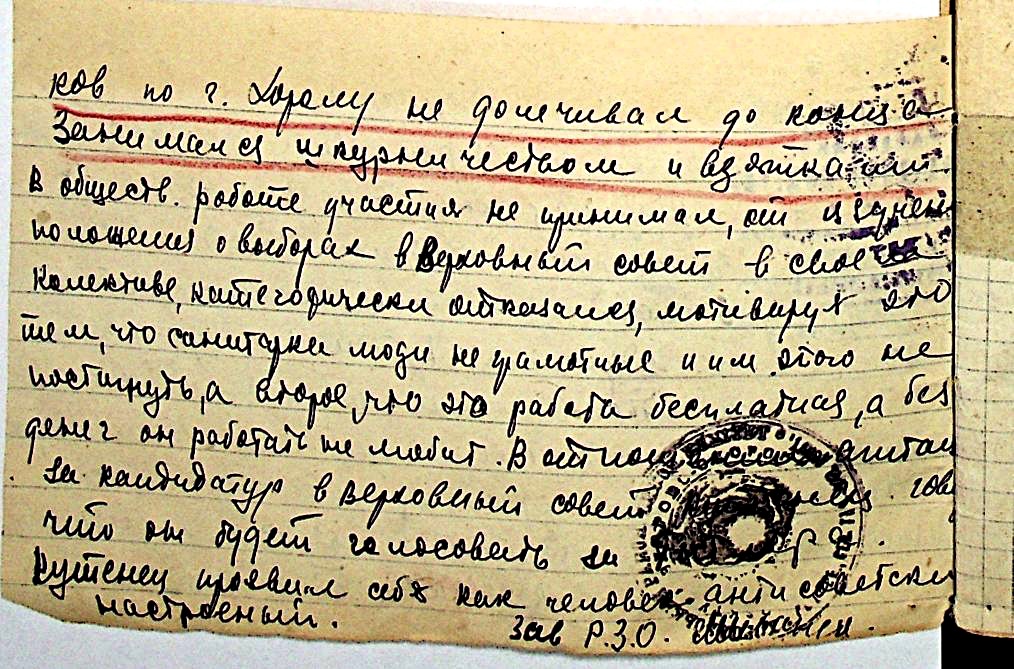 ков по г. не долечивал до конца
Занимался шкурничеством и взятками
В обществ. работе участия не принимал, от изучен
положения о выборах в Верховный совет в своем
Колективе, категорически отказался, мотивируя это
тем, что санитарки люди не грамотные и им этого не
постигнуть, а второе, что это работа бесплатная, а без
денег он работать не любит. В
за кандидатур в верховный совет гов
что он будет голосовать за
Кутенец проявил себя как человек антисоветски
настроеный.
Зав Р.З.О.